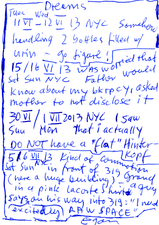 Dreams
Tues Wed
11 VI - 12 VI 13 NYC Somehow
handling 2 bottles filled w/
urin - go figure!
15/16 VI 13 Was worried that
Sat Sun NYC Father would
know about my bkcpcy, asked
mother to not disclose it
30 VI / 1 VII 2013 NYC I saw
Sun Mon that I actually
DO NOT have a "flat" Hinter-
kopf
5/6 VII 13 Kind of commotion
Sat Sun in front of 319 grand
(here a huge building), a guy
in a pink lacoste shirt
says on his way into 319: "I need
(excitedly) A RAW SPACE"